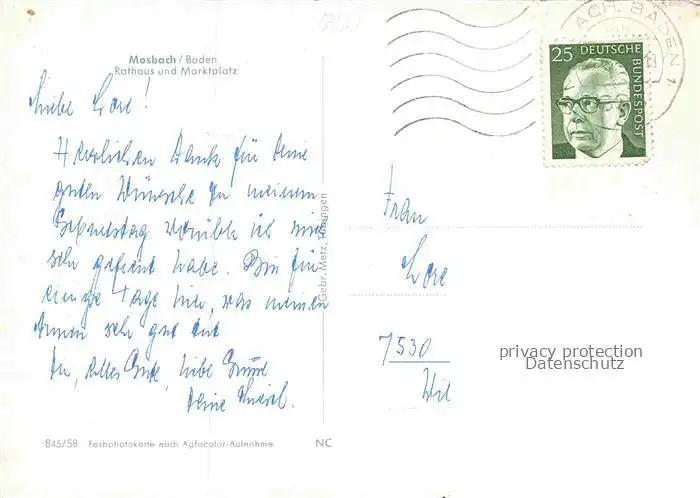 Mosbach / Baden
Rathaus und Marktplatz
Liebe Lore!
Herzlichen Dank für Deine
guten Wünsche zu meinem
Geburtstag worüber ich mich
sehr gefreut habe. Bin für
einige Tage hier, was meinen
sehr gut tut
Dir, alles Gute, liebe Grüsse
Deine
845/58 Farbphotokarte nach Agfacolor-Aufnahme
NC
Gebr. Metz, Tübingen
ACH, BADEN 1
25 DEUTSCHE
BUNDESPOST
Frau
Lore
7530
privacy protection
Datenschutz